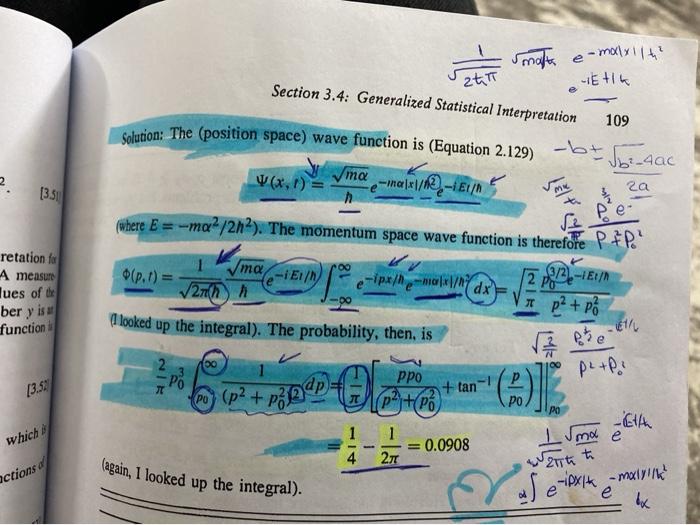 1/√2ħπ √mα/ħ e^-mα|x|/ħ²
e^-iEt/ħ
Section 3.4: Generalized Statistical Interpretation 109
Solution: The (position space) wave function is (Equation 2.129)
-b ± √b²-4ac
2a
Ψ(x, t) = √mα/ħ e^-mα|x|/ħ² e^-iEt/ħ
(where E = -mα²/2ħ²). The momentum space wave function is therefore
Φ(p, t) = 1/√2πħ √mα/ħ e^-iEt/ħ ∫_-∞^∞ e^-ipx/ħ e^-mα|x|/ħ² dx = √2/π p₀^3/2 e^-iEt/ħ / p² + p₀²
(I looked up the integral). The probability, then, is
2/π p₀³ ∫_p₀^∞ 1/(p² + p₀²)² dp = 1/π [ pp₀/p² + p₀² + tan⁻¹ (p/p₀) ]|_p₀^∞
= 1/4 - 1/2π = 0.0908
(again, I looked up the integral).
1/√2πħ √mα/ħ e^-iEt/ħ
∫ e^-ipx/ħ e^-mα|x|/ħ² dx
2.
[3.51]
retation for
A measure
lues of the
ber y is
function is
[3.52]
which is
actions of